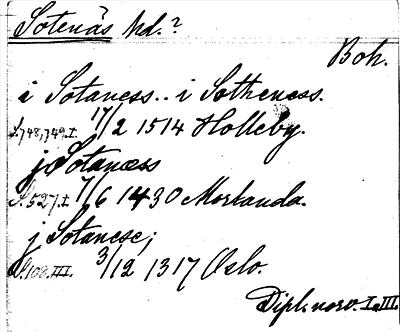 Sotenäs hd.?
Boh.
i Sotaness.. i Sotheness.
S. 748, 749. I. 17/2 1514 Holleby.
j Sotanæss
S. 527. I 7/6 1430 Morlanda.
j Sotanese;
S. 100. III. 3/12 1317 Oslo.
Dipl. norv. I. III.